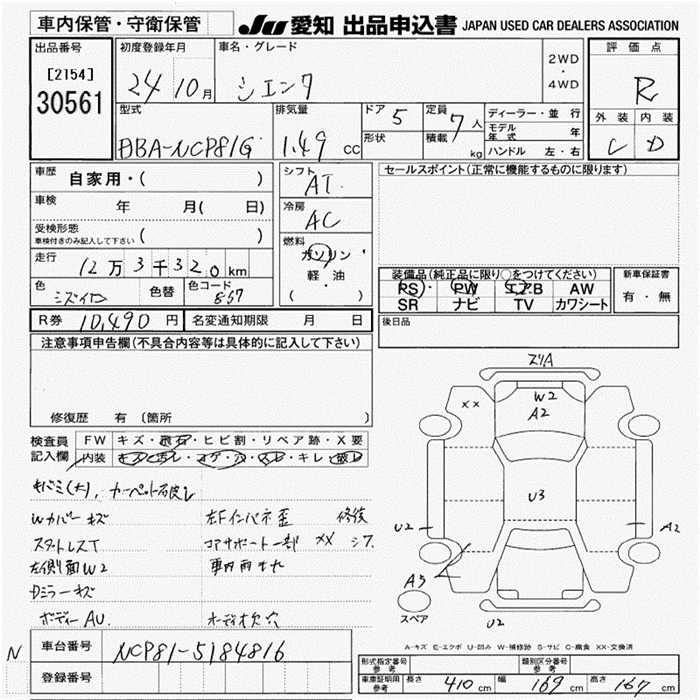 車内保管・守衛保管
JU 愛知 出品申込書 JAPAN USED CAR DEALERS ASSOCIATION
出品番号
[2154]
30561
初度登録年月
24 10月
車名・グレード
シエンタ
2WD
・
4WD
評価点
R
外装 内装
C D
型式
DBA-NCP81G
排気量
1.49 cc
ドア 5
形状
定員 7 人
積載 kg
ディーラー・並行
モデル年式 年
ハンドル 左・右
車歴 自家用・( )
車検 年 月( 日)
受検形態
車検付きのみ記入して下さい ( )
走行 12万3千320km
色
色替
色コード
857
シフト
AT
冷房
AC
燃料
ガソリン
軽・油
( )
セールスポイント(正常に機能するものに限ります)
装備品(純正品に限り○をつけてください)
PS PW エアB AW
SR ナビ TV カワシート
新車保証書
有・無
後日品
R券 10,490 円
名変通知期限 月 日
注意事項申告欄(不具合内容等は具体的に記入して下さい)
修復歴 有 (箇所
検査員
記入欄
FW キズ・飛石・ヒビ割・リペア跡・X要
内装 キズ・汚レ・コゲ・穴・スレ・キレ・破レ
Wカバーキズ
左Fインパネ歪 修復
スタットレスT
コアサポート一部 XX シア
左側面W2
車内雨もれ
Dミラーキズ
ボディーAU.
オーディオ欠 穴
スリA
XX
W2
A2
U3
U2
A2
A3
スペア
U2
A-キズ E-エクボ U-凹み W-補修跡 S-サビ C-腐食 XX-交換済
N
車台番号 NCP81-5184816
登録番号
形式指定番号 参考
類別区分番号 参考
車庫証明用 参考 長さ 410cm 幅 169cm 高さ 167cm